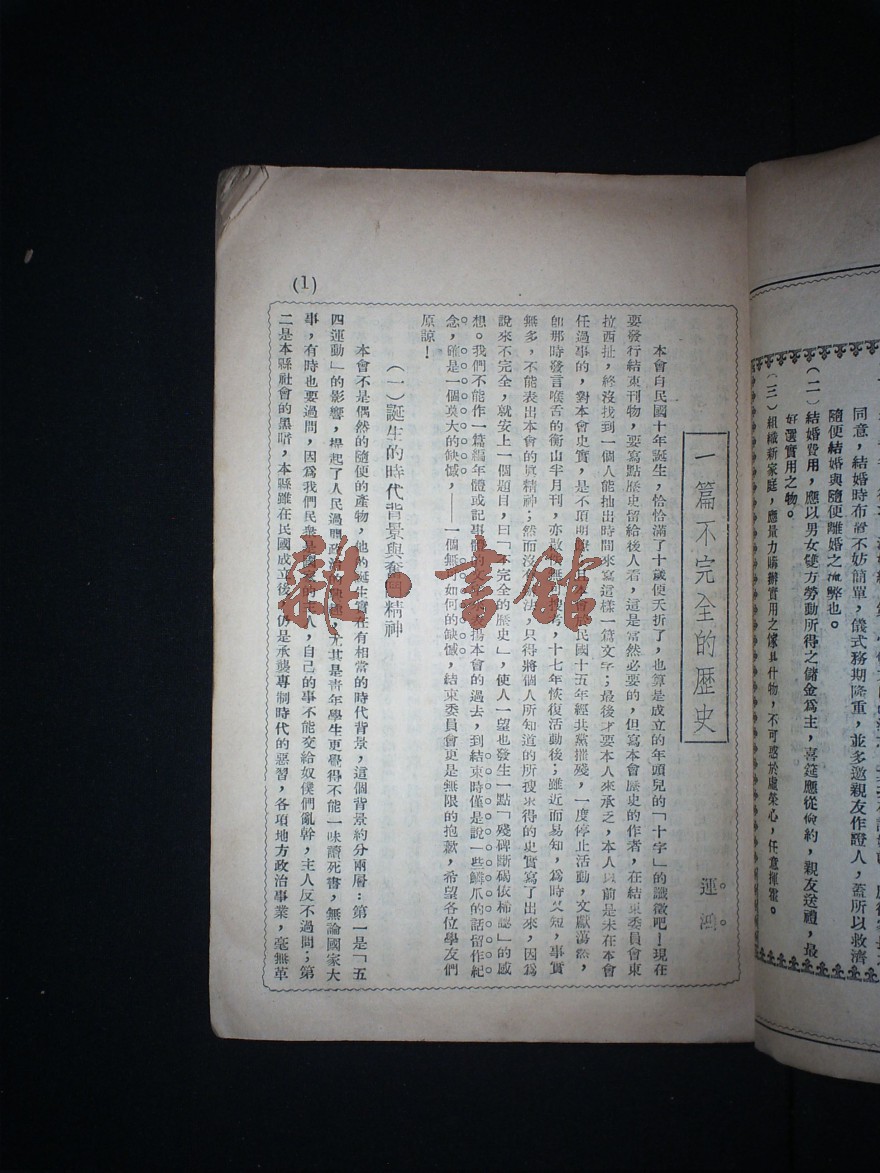 同意,結婚時布置不妨簡單,儀式務期隆重,並多邀親友作證人,蓋所以救濟
隨便結婚與隨便離婚之流弊也。
(二)結婚費用,應以男女雙方勞動所得之儲金爲主,喜筵應從儉約,親友送禮,最
好選實用之物。
(三)組織新家庭,應量力購辦實用之傢具什物,不可惑於虛榮心,任意揮霍。
(1)
一篇不完全的歷史
運
本會自民國十年誕生,恰恰滿了十歲便夭折了,也算是成立的年頭兒的「十字」的讖徵吧!現在
要發行結束刊物,要寫點歷史留給後人看,這是當然必要的,但寫本會歷史的作者,在結束委員會東
拉西扯,終沒找到一個人能抽出時間來寫這樣一篇文字;最後才要本人來承乏,本人以前是未在本會
任過事的,對本會史實,是不頂明瞭,且本會於民國十五年經共黨摧殘,一度停止活動,文獻蕩然,
卽那時發言喉舌的衡山半月刊,亦散,十七年恢復活動後;雖近而易知,爲時又短,事實
無多,不能表出本會的眞精神;然而沒法,只得將個人所知道的所搜求得的史實寫了出來,因爲
說來不完全,就安上一個題目,曰「不完全的歷史」,使人一望也發生一點「殘碑斷碣依稀認」的感
想。我們不能作一篇編年體或記事體的揚本會的過去,到結束時僅是說一些鱗爪的話留作紀
念,確是一個莫大的缺憾,——一個無如何的缺憾,結束委員會更是無限的抱歉,希望各位學友們
原諒!
(一)誕生的時代背景與奮鬥精神
本會不是偶然的隨便的產物,他的誕生實在有相當的時代背景,這個背景約分兩層:第一是「五
四運動」的影響,擧起了人民過問政治的,尤其是青年學生更覺得不能一味讀死書,無論國家大
事,有時也要過問,因爲我們民衆是國家的主人,自己的事不能交給奴僕們亂幹,主人反不過問;第
二是本縣社會的黑暗,本縣雖在民國成立後,仍是承襲專制時代的惡習,各項地方政治事業,毫無革
雜·書館